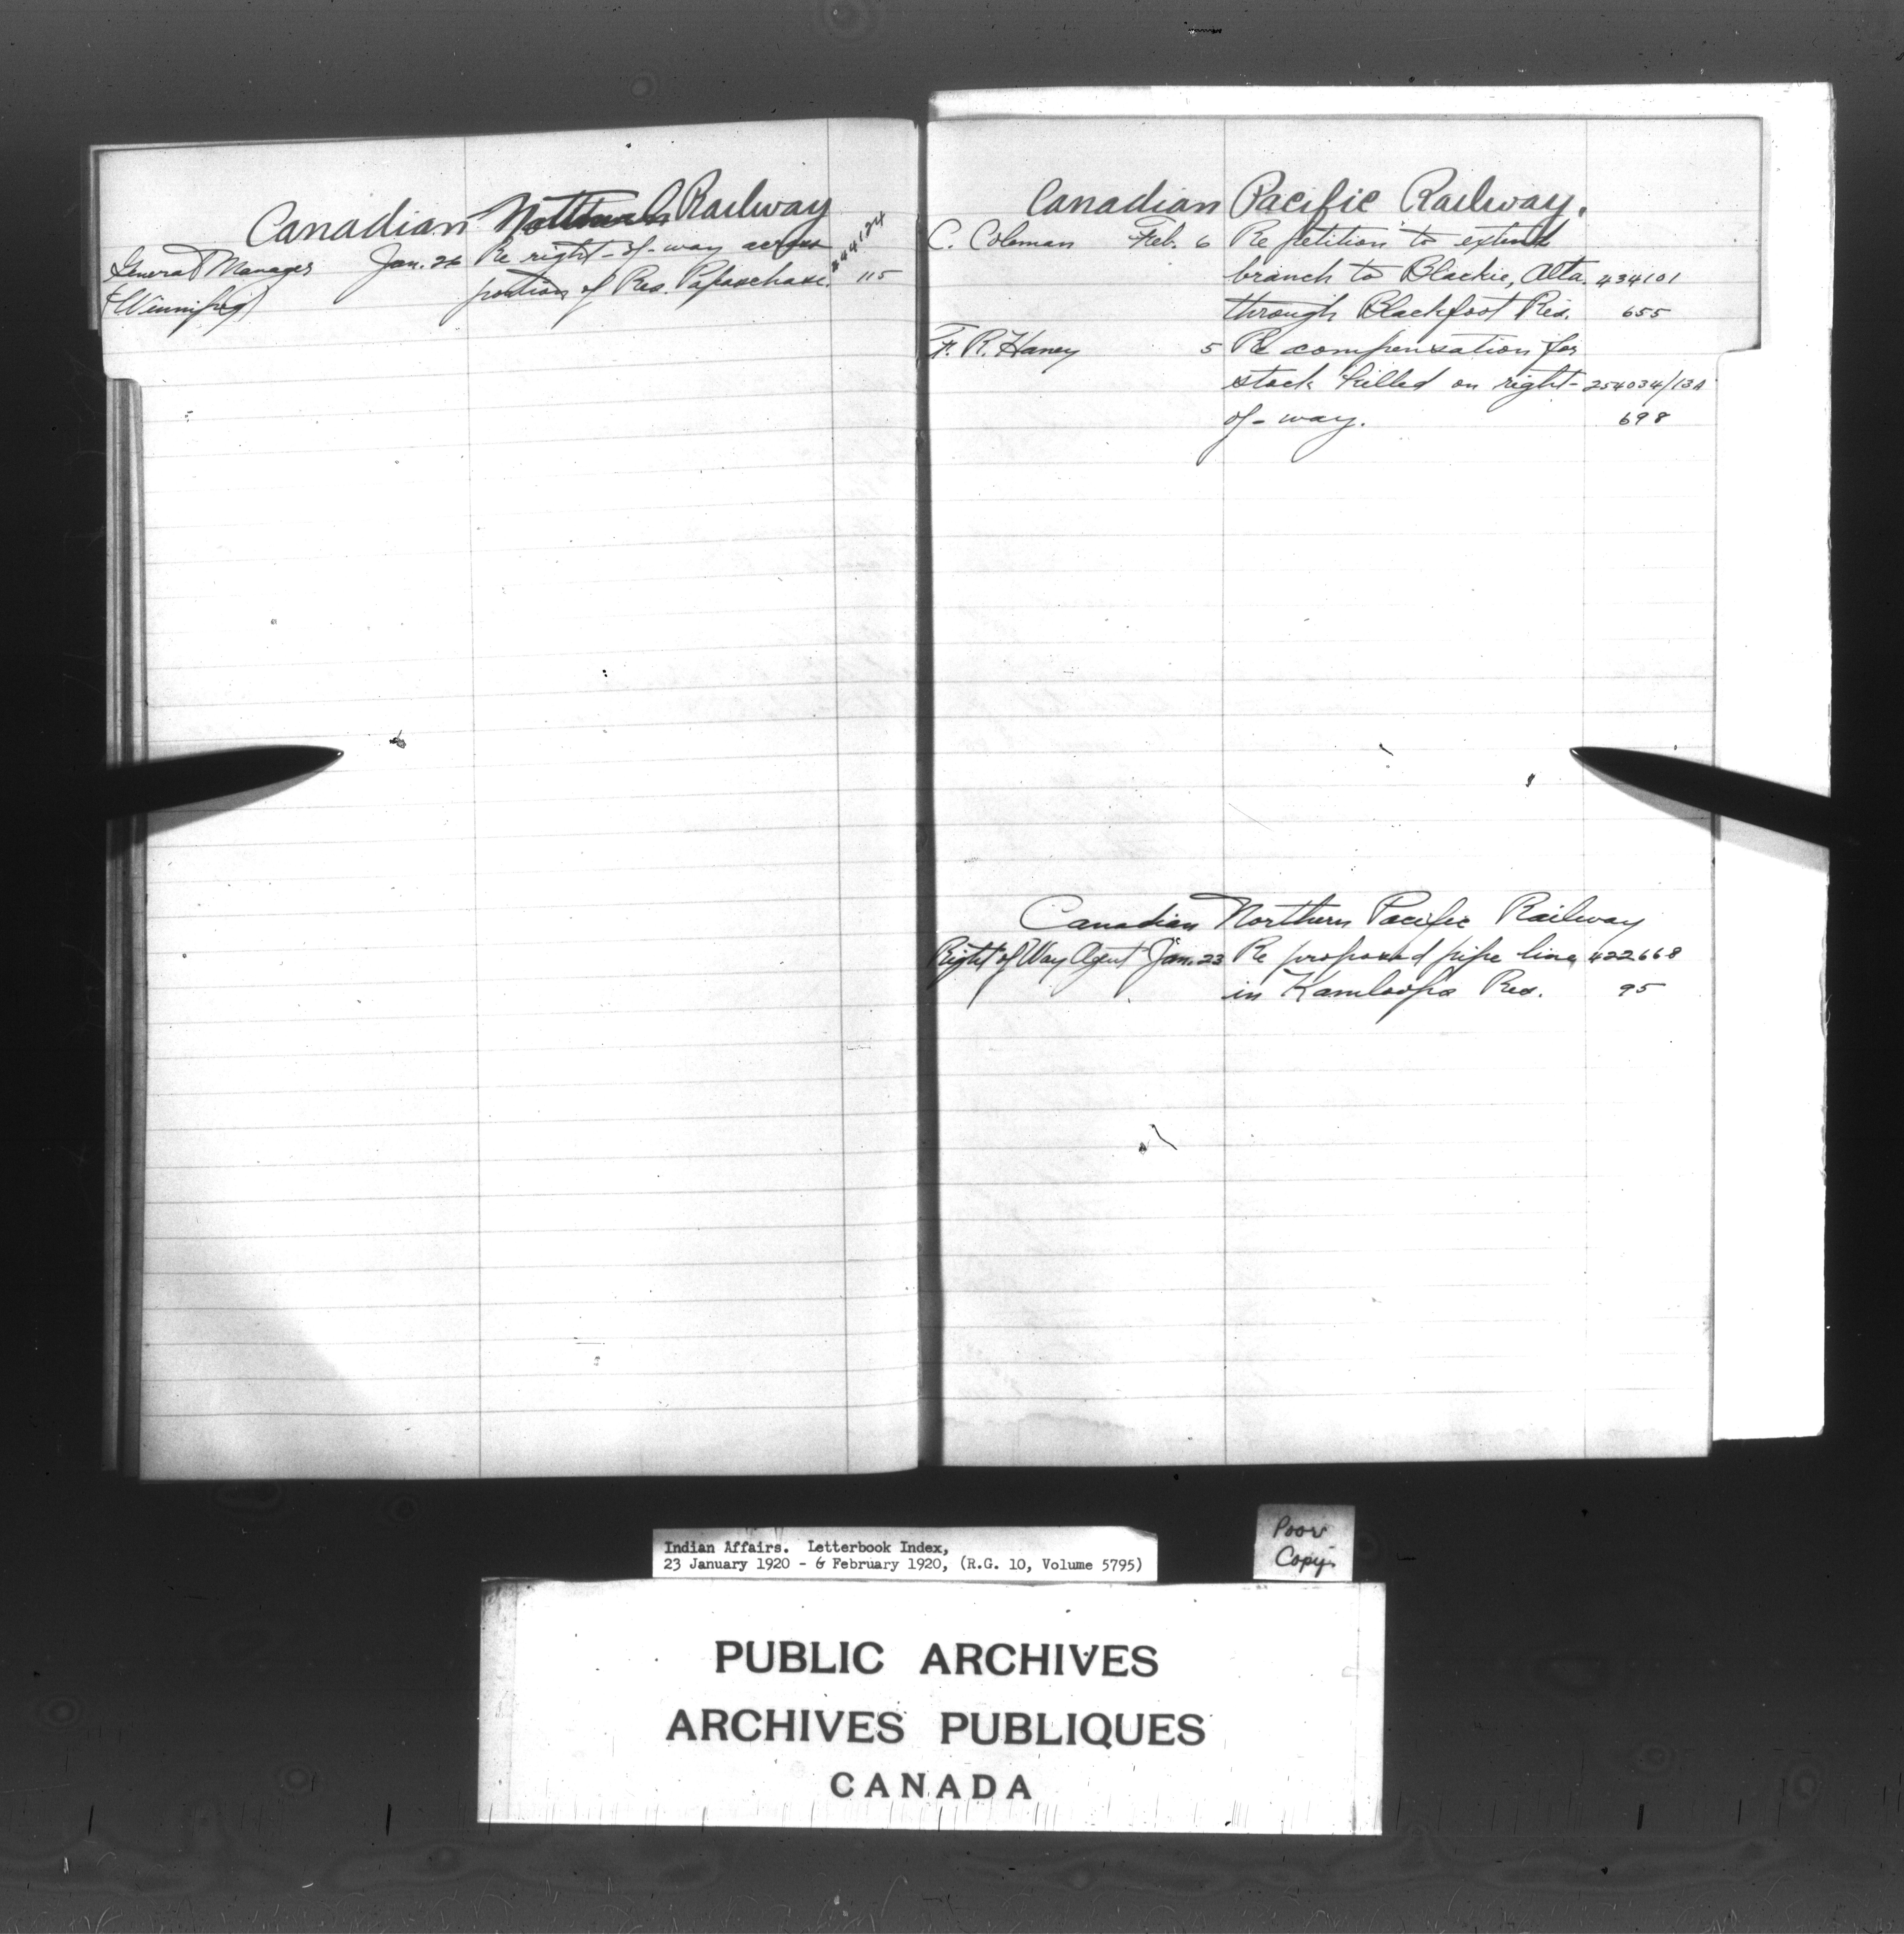 Canadian Railway
General Manager Jan. 26 Re right-of-way across
(Winnipeg) portion of Res. Papaschase. 115
Canadian Pacific Railway.
C. Coleman Feb. 6 Re petition to extend
branch to Blackie, Alta. 434101
through Blackfoot Res. 655
F. R. Haney 5 Re compensation for
stock killed on right- 254034/13A
of-way. 698
Canadian Northern Pacific Railway
Right of Way Agent Jan. 23 Re proposed pipe line 422668
in Kamloops Res. 95
Indian Affairs. Letterbook Index,
23 January 1920 - 6 February 1920, (R.G. 10, Volume 5795)
Poor
Copy.
PUBLIC ARCHIVES
ARCHIVES PUBLIQUES
CANADA